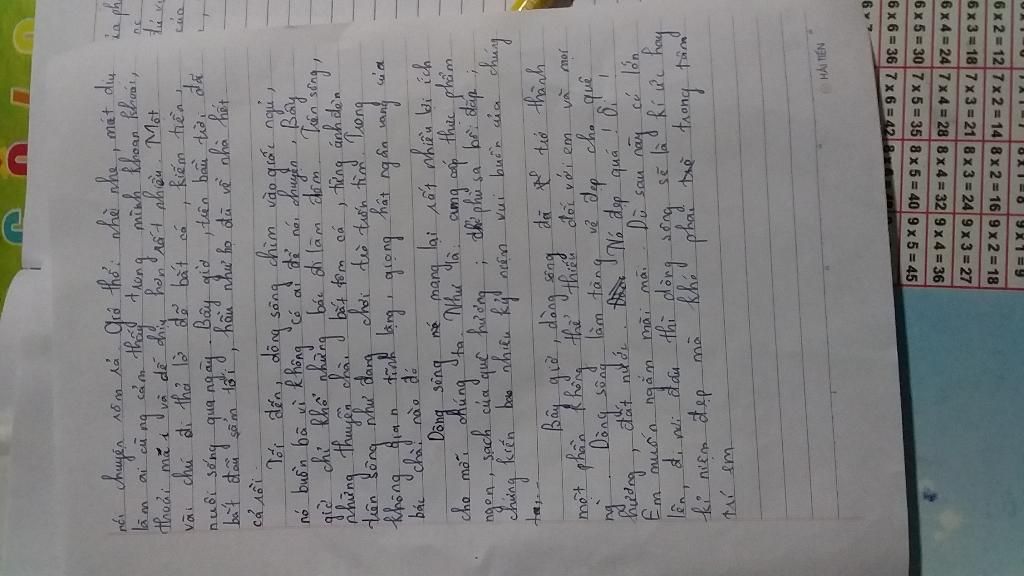 nói chuyện rôm rả. Gió thổi nhè nhẹ, mát dịu
làm ai cũng cảm thấy trong mình khoan khoái,
thoải mái và dễ chịu hơn rất nhiều. Một
vài chú đi thả lờ để bắt cá, kiếm tiền,
nuôi sống qua ngày. Bây giờ, trên bầu trời đã
bắt đầu sầm tối, hầu như họ đã về nhà hết
cả rồi.
Tối đến, dòng sông chìm vào giấc ngủ,
nó buồn bã vì không có ai để nói chuyện. Bây
giờ chỉ khổ những bác đi làm đêm. Trên sông,
những thuyền chài bắt tôm cá, từng ánh đèn
thân sông như đang chơi trò trốn tìm. Trong
không gian tĩnh lặng, giọng hát ngân vang của
bác chài nào đó.
Dòng sông mang lại rất nhiều lợi ích
cho mỗi chúng ta. Như là: cung cấp thực phẩm
ngon, sạch của quê hương; phù sa bồi đắp;
chứng kiến bao nhiêu kỷ niệm vui buồn của chúng
ta,...
Bây giờ, dòng sông đã trở thành
một phần không thể thiếu đối với em và mọi
người. Dòng sông làm tăng vẻ đẹp cho quê
hương, đất nước. Nó đẹp quá! Ôi!
Em muốn ngắm mãi mãi. Dù sau này có lớn
lên, đi nơi đâu thì dòng sông sẽ là kí ức hay
kỉ niệm đẹp mà khó phai trong tâm
trí em
HẢI TIẾN
6 x 2 = 12
6 x 3 = 18
6 x 4 = 24
6 x 5 = 30
6 x 6 = 36
7 x 2 = 14
7 x 3 = 21
7 x 4 = 28
7 x 5 = 35
7 x 6 = 42
8 x 2 = 16
8 x 3 = 24
8 x 4 = 32
8 x 5 = 40
9 x 2 = 18
9 x 3 = 27
9 x 4 = 36
9 x 5 = 45